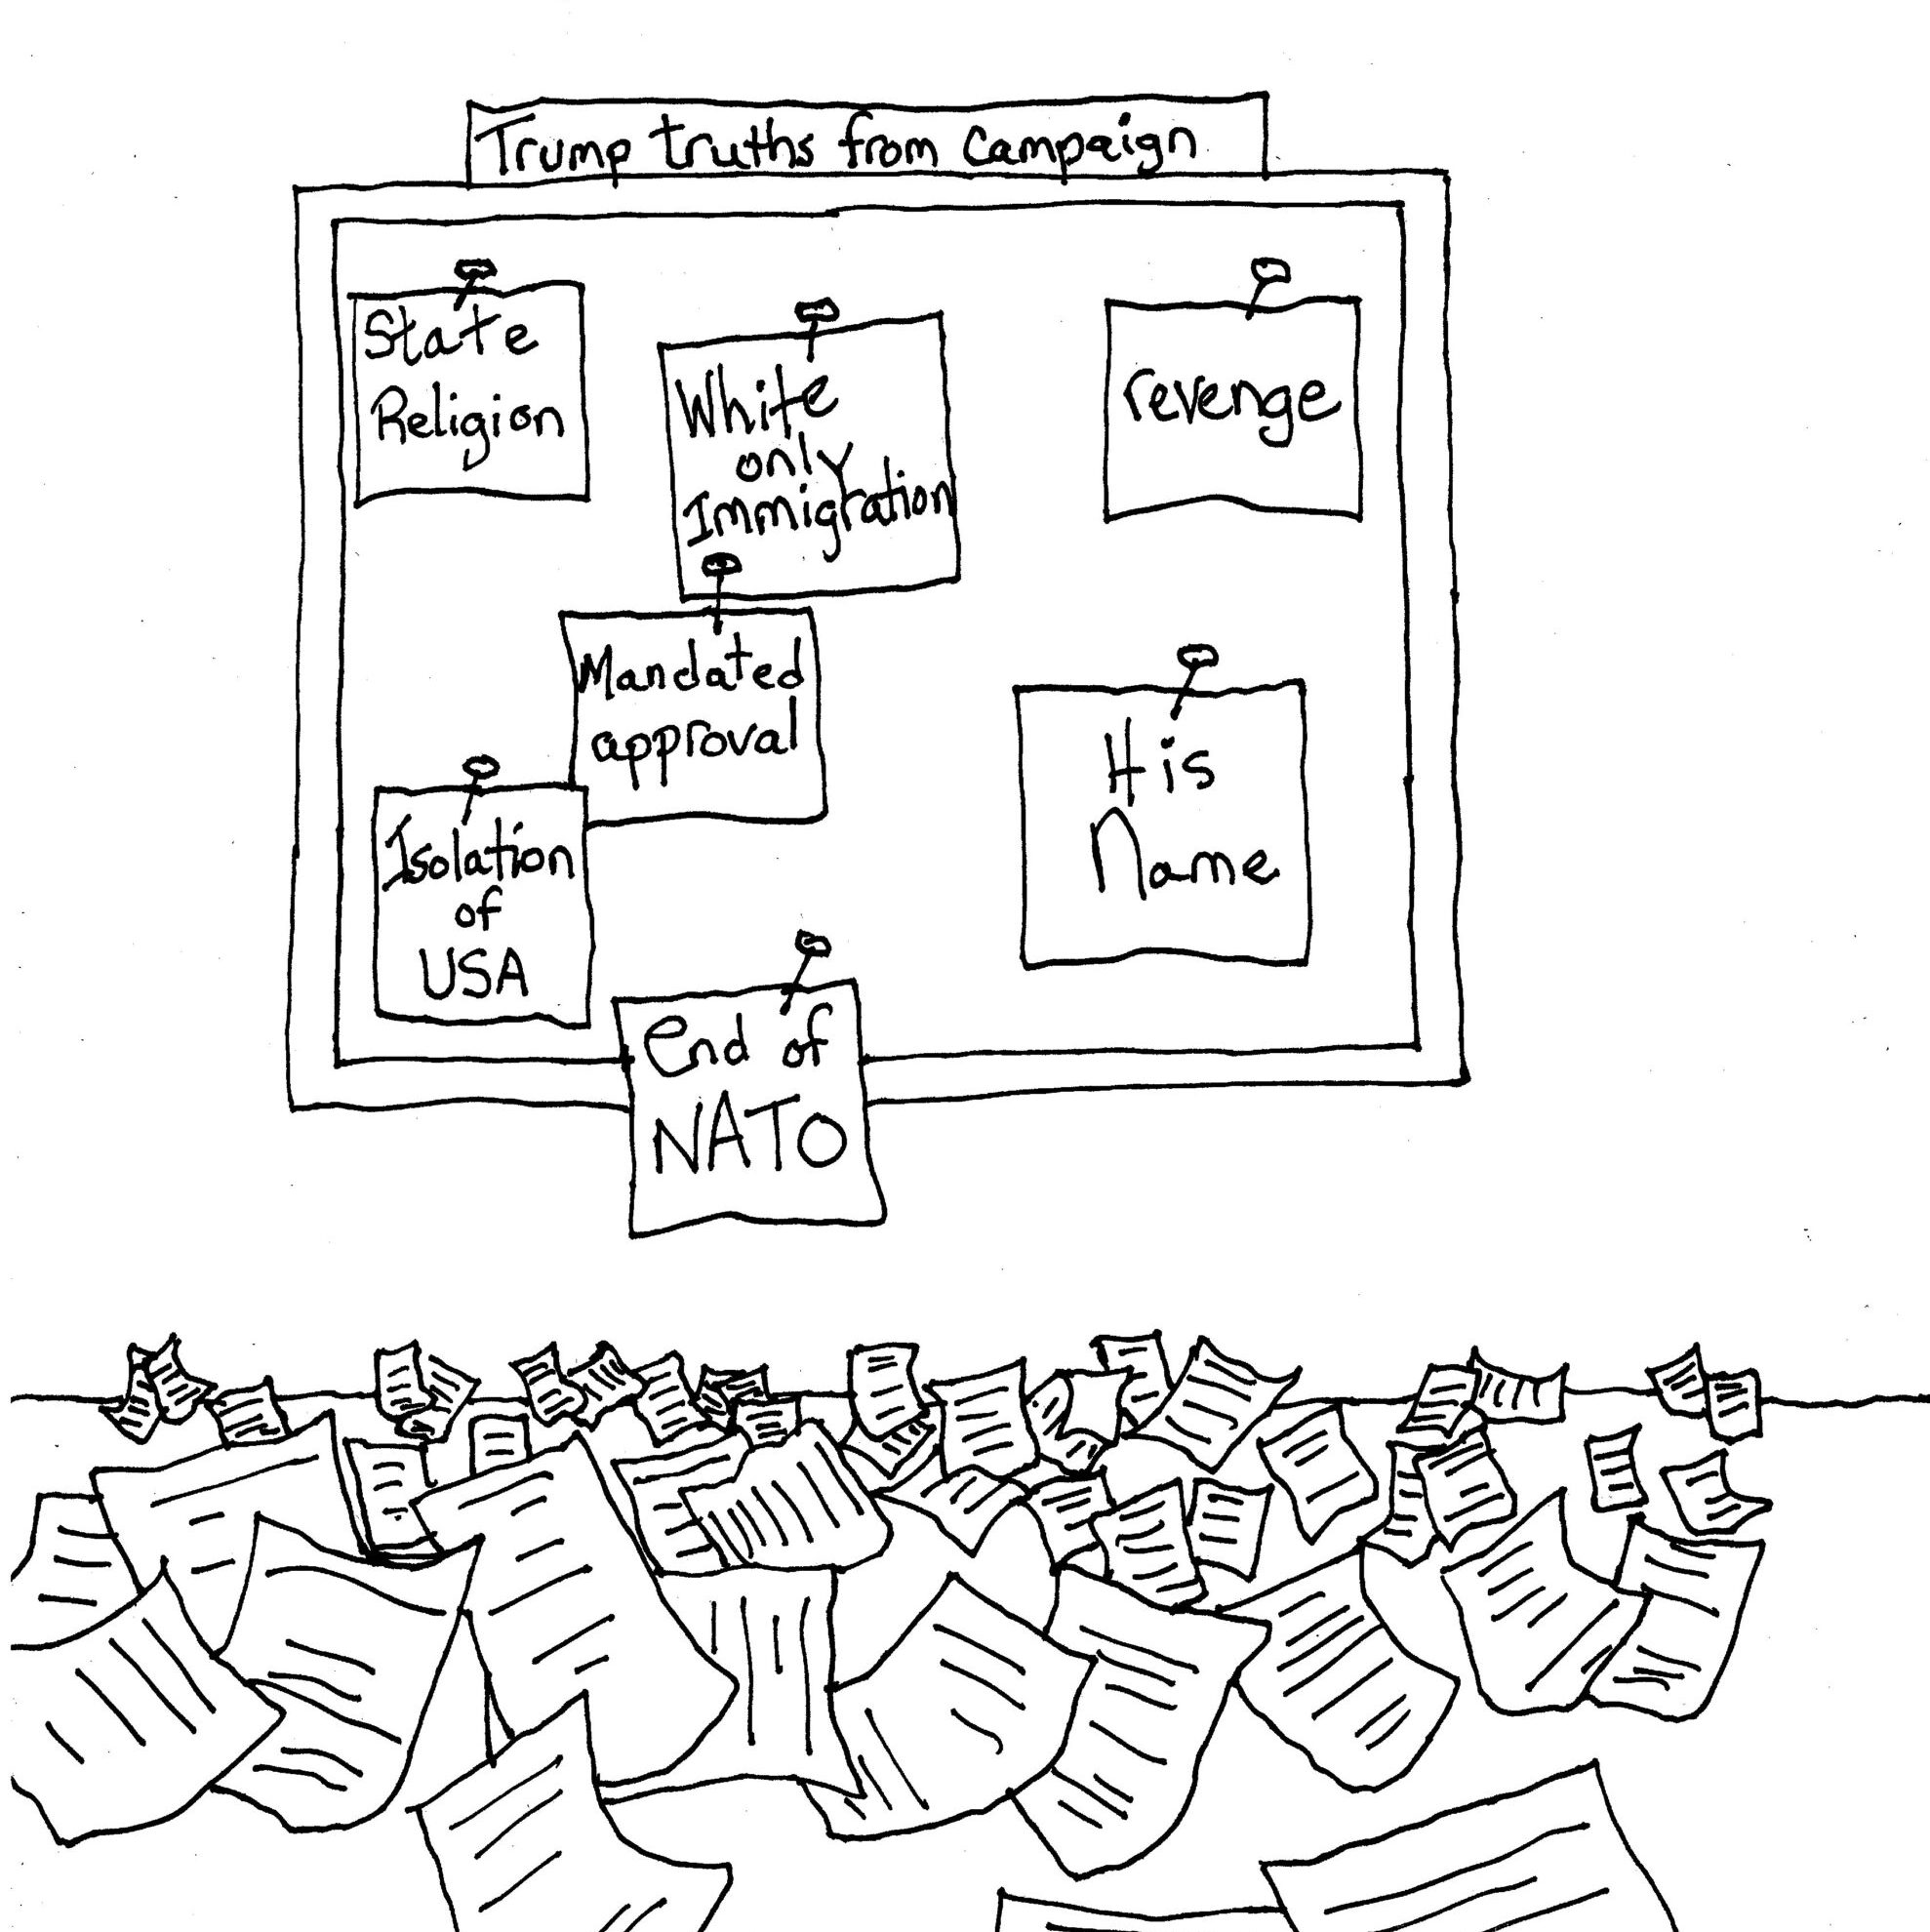 Trump truths from Campaign
State
Religion
White
only
Immigration
revenge
Mandated
approval
His
Name
Isolation
of
USA
End of
NATO